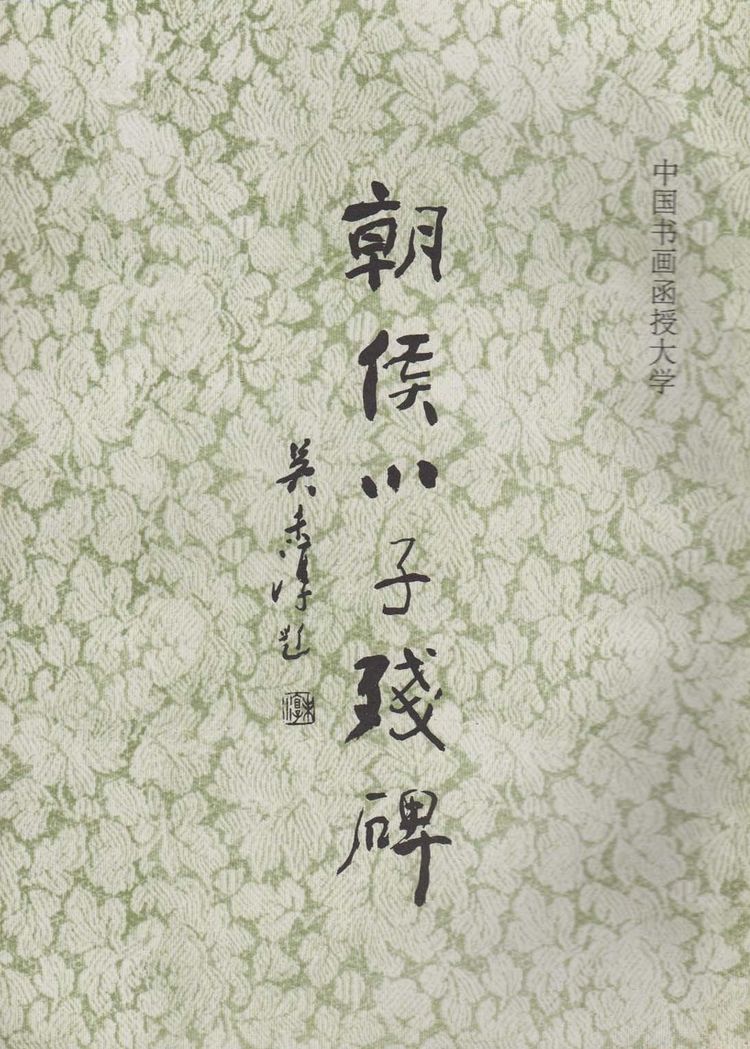 中国书画函授大学
朝侯小子殘碑
吴未淳题
未淳